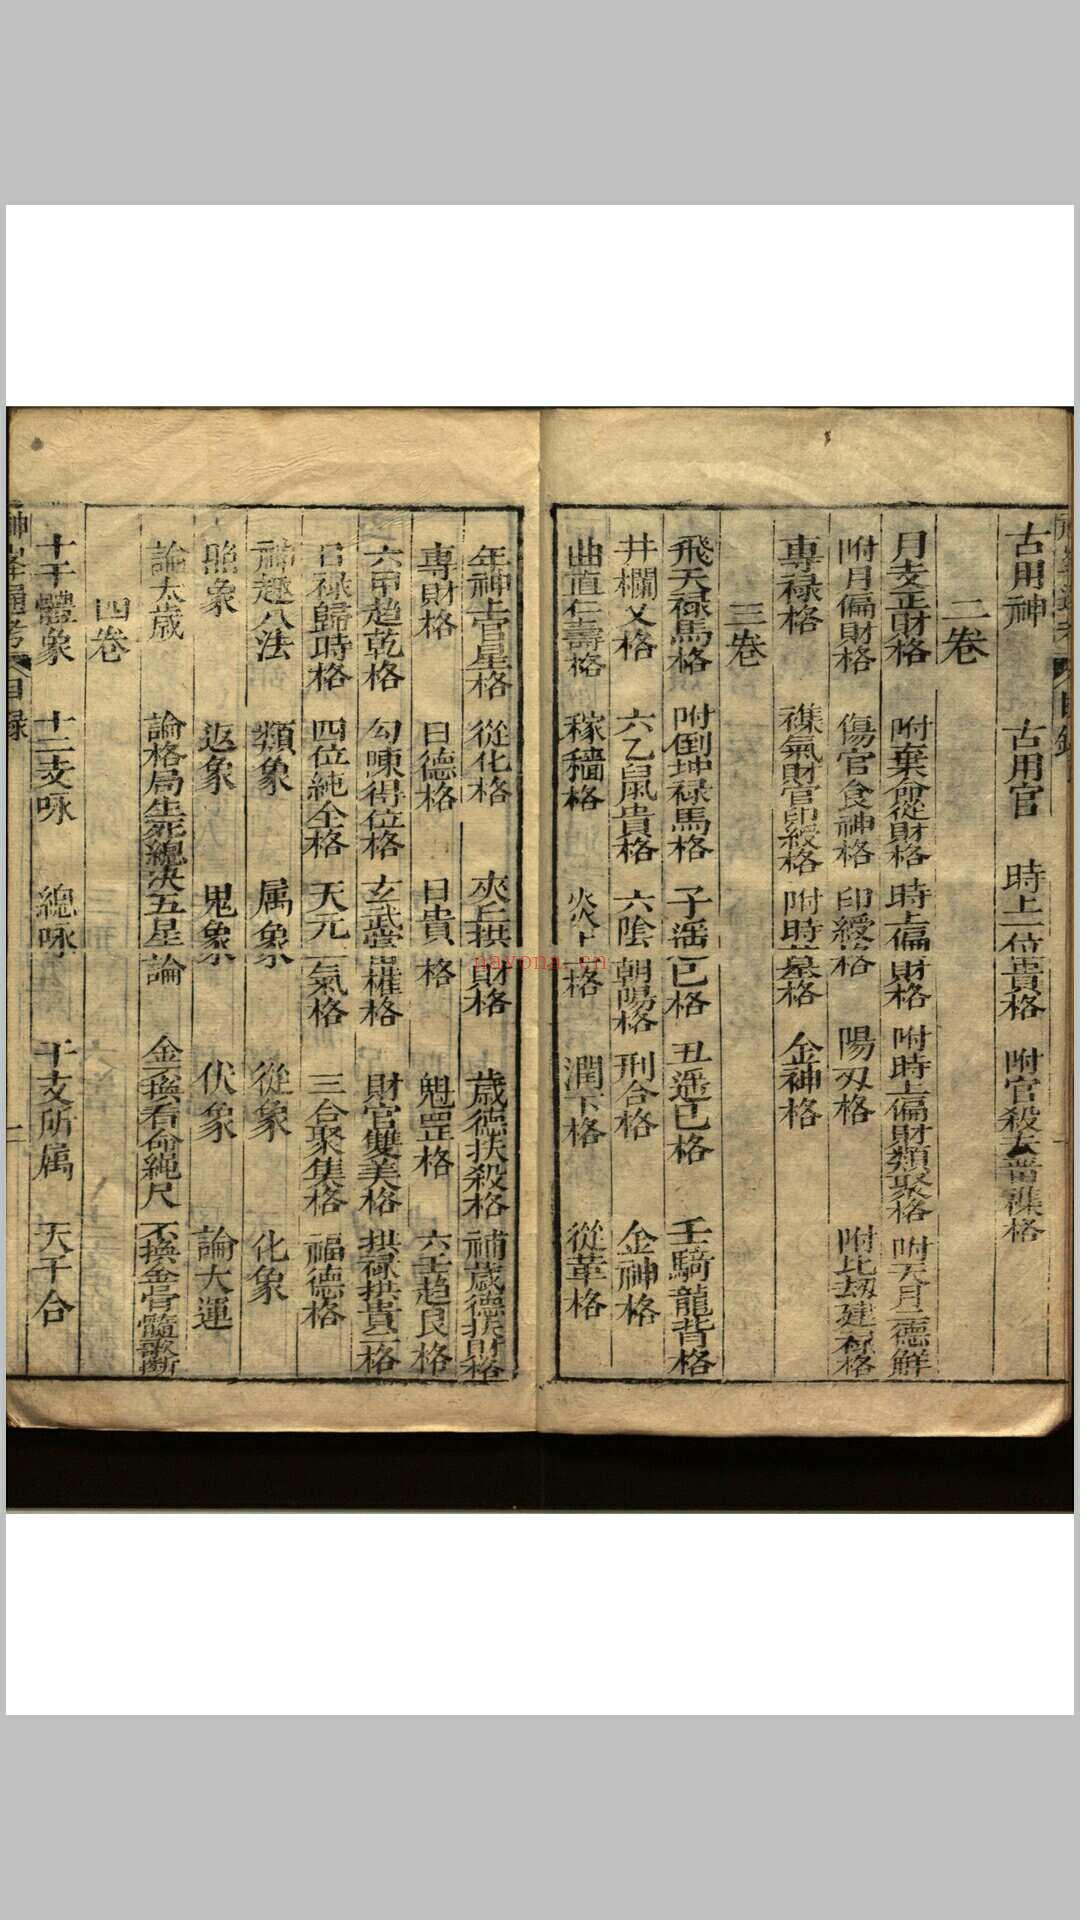 古用神 古用官 時上一位貴格 附官殺去畱襍格
二卷
月支正財格 附棄命從財格 時上偏財格 附時上偏財類聚格 附天月二德解
附月偏財格 傷官食神格 印綬格 陽刃格 附比刼建祿格
專祿格 襍氣財官印綬格 附時墓格 金神格
三卷
飛天祿馬格 附倒坤祿馬格 子遥巳格 丑遥巳格 壬騎龍背格
井欄叉格 六乙鼠貴格 六陰朝陽格 刑合格 金神格
曲直仁壽格 稼穡格 炎上格 潤下格 從革格
年神官星格 從化格 夾丘拱財格 歲德扶殺格 補歲德扶財格
專財格 日德格 日貴格 魁罡格 六壬趨艮格
六甲趨乾格 勾陳得位格 玄武當權格 財官雙美格 拱祿拱貴二格
日祿歸時格 四位純全格 天元一氣格 三台聚集格 福德格
神趣八法 類象 属象 從象 化象
照象 返象 鬼象 伏象 論大運
論太歲 論格局生死總決五星論 金不換看命繩尺 不換金骨髓歌斷
四卷
十干體象 十二支咏 總咏 干支所属 天干合
神峯通考 目録